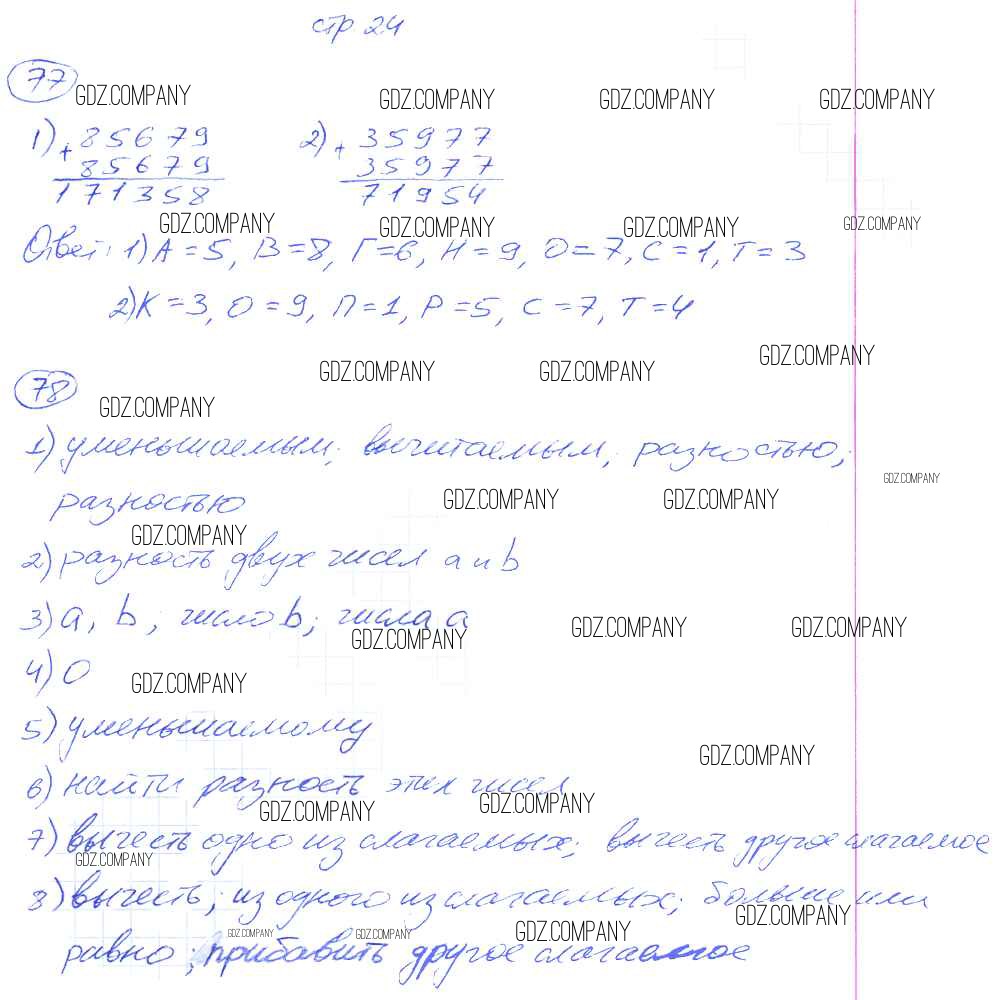 стр 24
77
GDZ.COMPANY GDZ.COMPANY GDZ.COMPANY GDZ.COMPANY
1) + 85679 2) + 35977
85679 35977
171358 71954
GDZ.COMPANY GDZ.COMPANY GDZ.COMPANY GDZ.COMPANY
Ответ: 1) А = 5, В = 8, Г = 6, Н = 9, О = 7, С = 1, Т = 3
2) К = 3, О = 9, П = 1, Р = 5, С = 7, Т = 4
GDZ.COMPANY GDZ.COMPANY GDZ.COMPANY
78
GDZ.COMPANY
1) уменьшаемым; вычитаемым; разностью;
GDZ.COMPANY
разностью
GDZ.COMPANY GDZ.COMPANY
GDZ.COMPANY
2) разность двух чисел a и b
3) a, b; число b; числа a
GDZ.COMPANY GDZ.COMPANY GDZ.COMPANY
4) 0
GDZ.COMPANY
5) уменьшаемому
GDZ.COMPANY
6) найти разность этих чисел
GDZ.COMPANY GDZ.COMPANY
7) вычесть одно из слагаемых; вычесть другое слагаемое
GDZ.COMPANY
8) вычесть; из одного из слагаемых; больше или
GDZ.COMPANY GDZ.COMPANY GDZ.COMPANY GDZ.COMPANY
равно; прибавить другое слагаемое